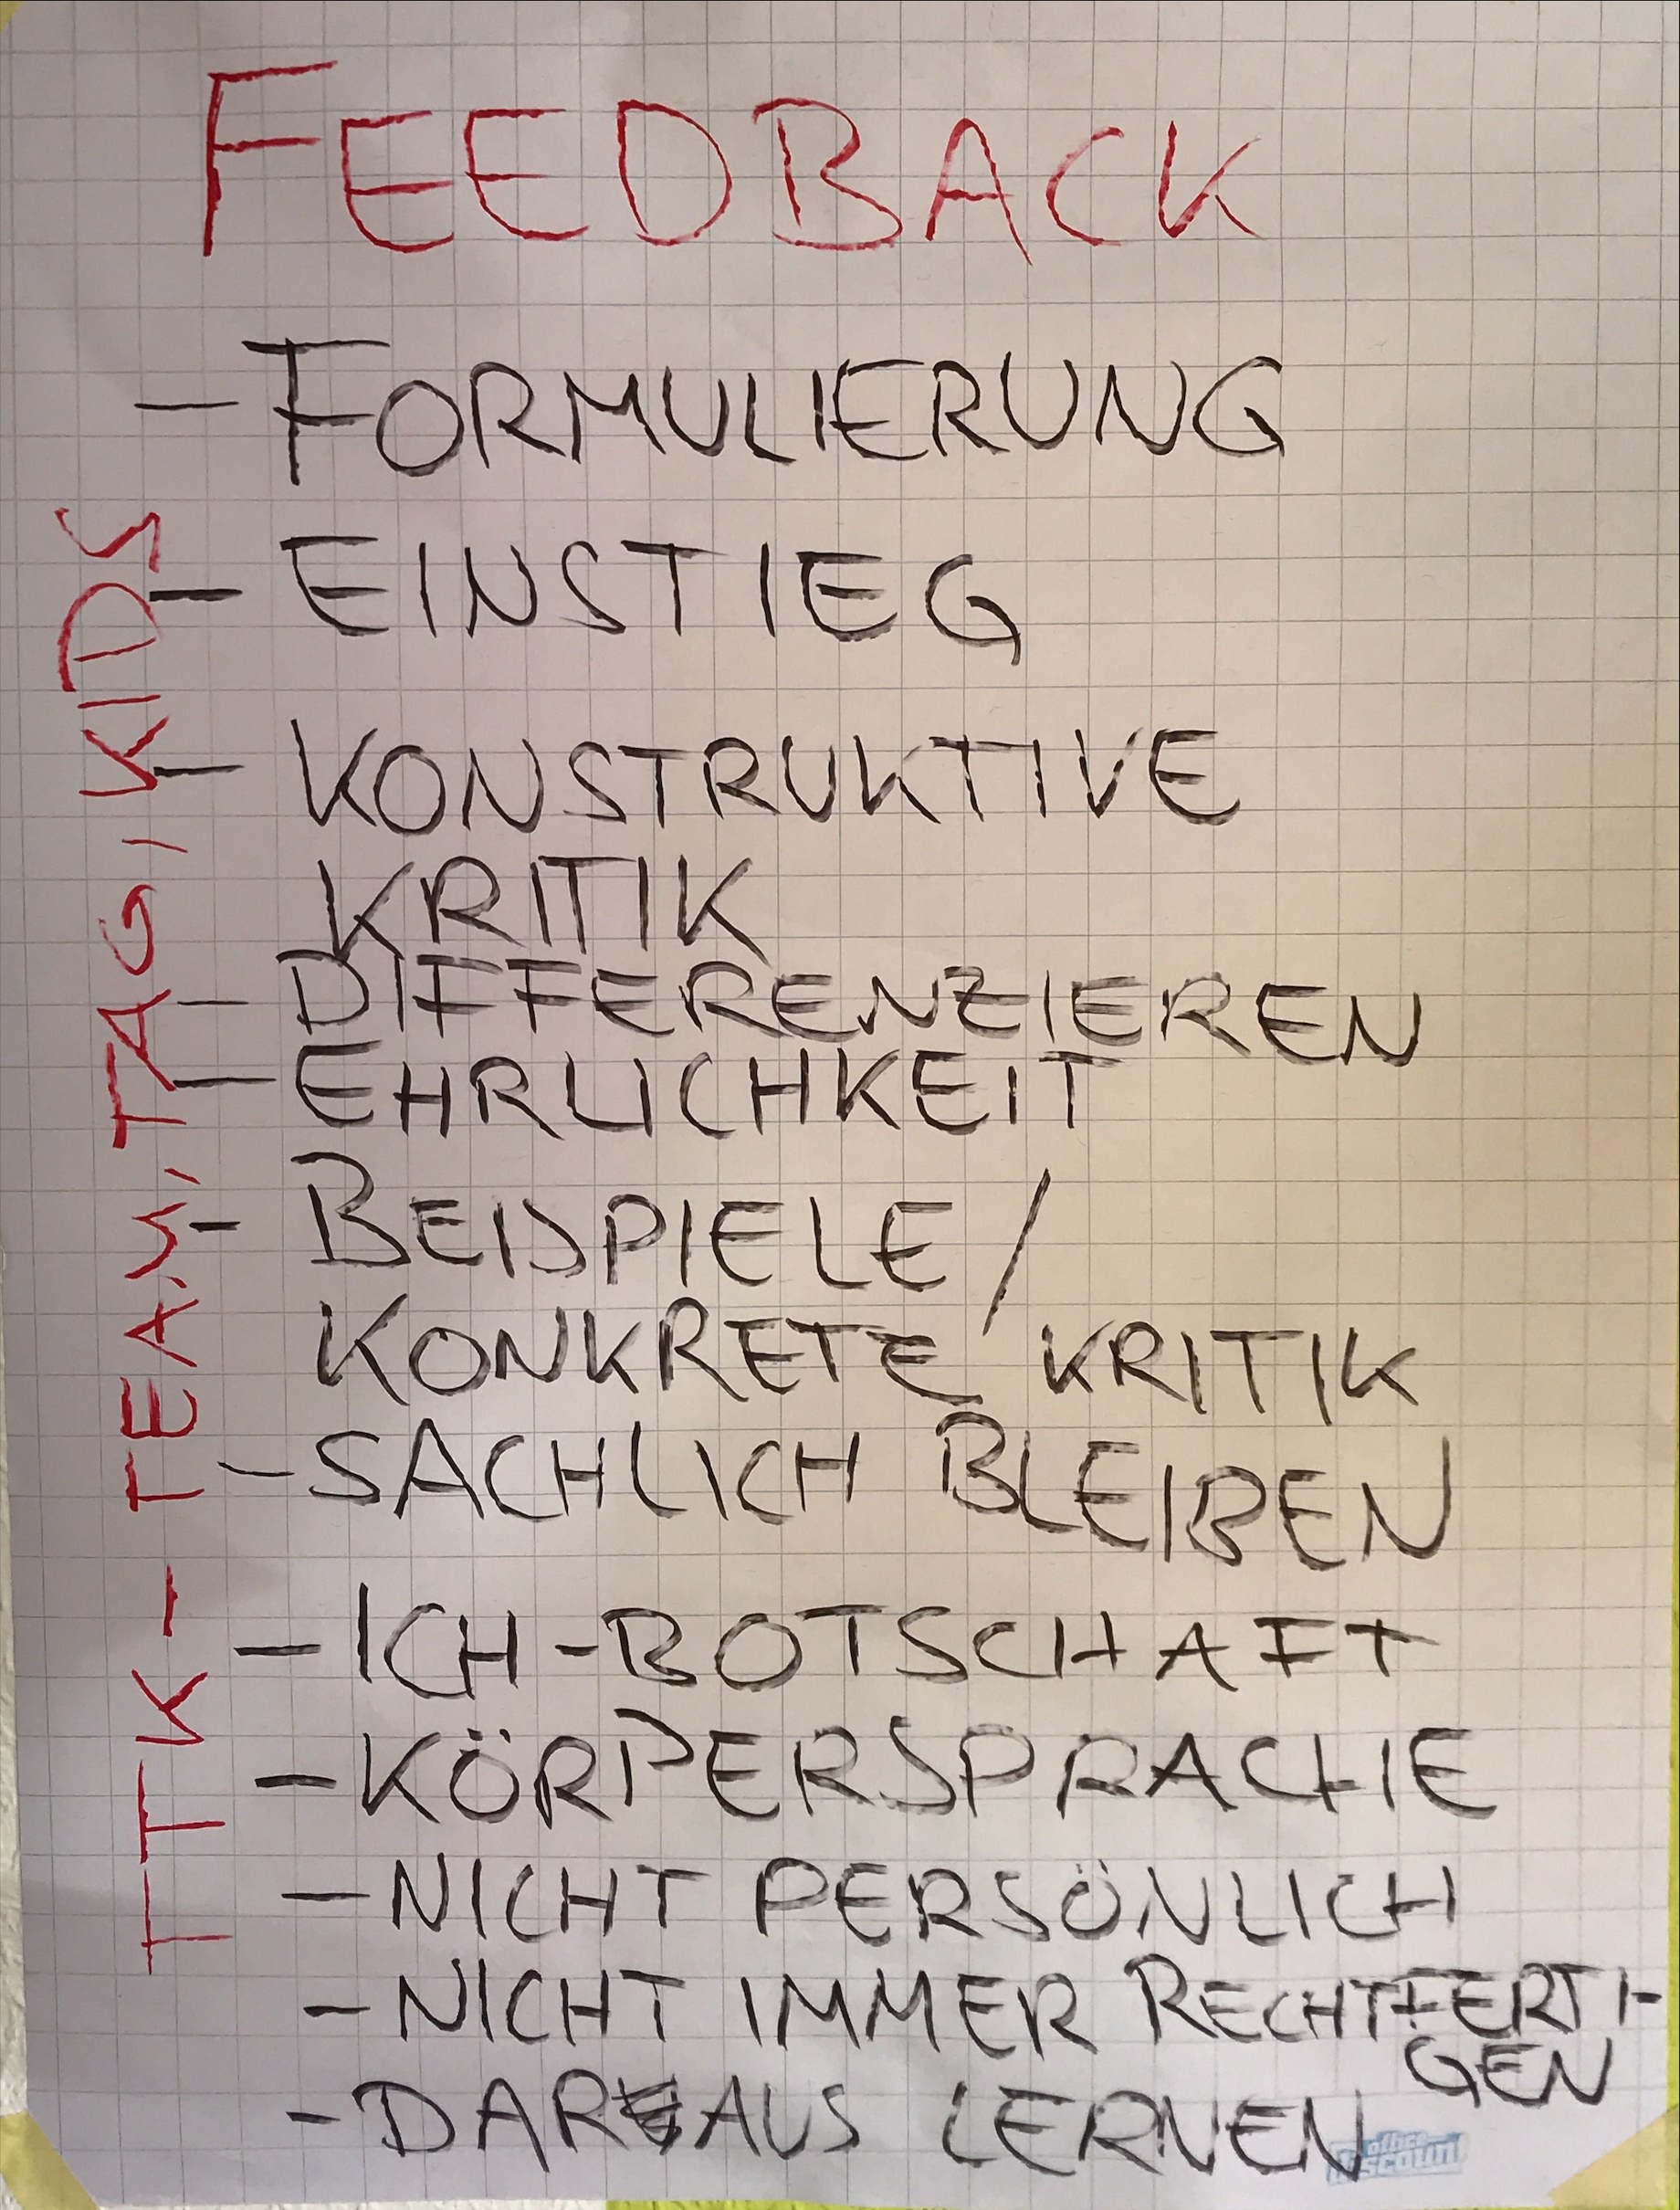 FEEDBACK
- FORMULIERUNG
- EINSTIEG
- KONSTRUKTIVE
KRITIK
- DIFFERENZIEREN
- EHRLICHKEIT
- BEISPIELE /
KONKRETE KRITIK
- SACHLICH BLEIBEN
- ICH-BOTSCHAFT
- KÖRPERSPRACHE
- NICHT PERSÖNLICH
- NICHT IMMER RECHTFERTI-
GEN
- DARAUS LERNEN
TTK - TEAM, TAG, KIDS
office discount